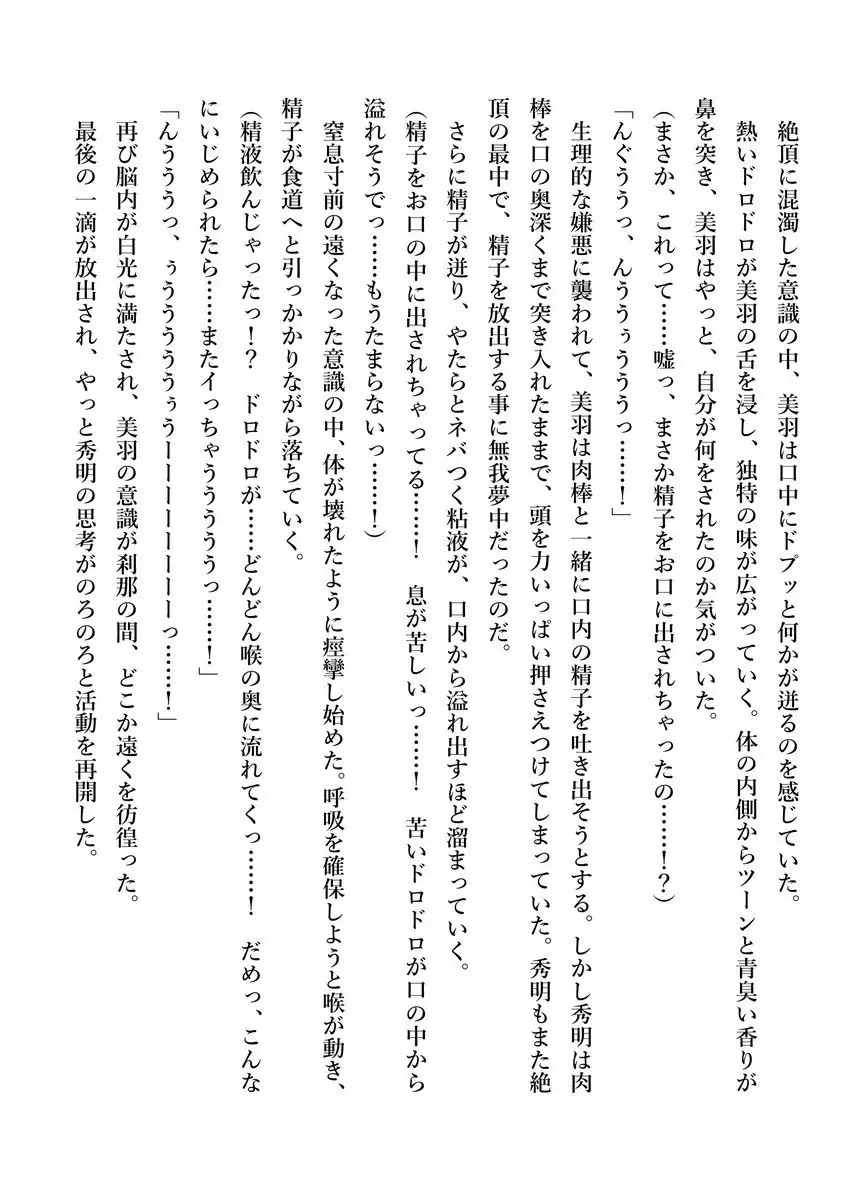 絶頂に混濁した意識の中、美羽は口中にドプッと何かが迸るのを感じていた。
熱いドロドロが美羽の舌を浸し、独特の味が広がっていく。体の内側からツーンと青臭い香りが
鼻を突き、美羽はやっと、自分が何をされたのか気がついた。
(まさか、これって……嘘っ、まさか精子をお口に出されちゃったの……!?)
「んぐううっ、んううぅうううっ……!」
生理的な嫌悪に襲われて、美羽は肉棒と一緒に口内の精子を吐き出そうとする。しかし秀明は肉
棒を口の奥深くまで突き入れたままで、頭を力いっぱい押さえつけてしまっていた。秀明もまた絶
頂の最中で、精子を放出する事に無我夢中だったのだ。
さらに精子が迸り、やたらとネバつく粘液が、口内から溢れ出すほど溜まっていく。
(精子をお口の中に出されちゃってる……! 息が苦しいっ……! 苦いドロドロが口の中から
溢れそうでっ……もうたまらないっ……!)
窒息寸前の遠くなった意識の中、体が壊れたように痙攣し始めた。呼吸を確保しようと喉が動き、
精子が食道へと引っかかりながら落ちていく。
(精液飲んじゃったっ!? ドロドロが……どんどん喉の奥に流れてくっ……! だめっ、こんな
にいじめられたら……またイっちゃううううっ……!」
「んううっ、ぅうううううぅうーーーーーーーっ……!」
再び脳内が白光に満たされ、美羽の意識が刹那の間、どこか遠くを彷徨った。
最後の一滴が放出され、やっと秀明の思考がのろのろと活動を再開した。